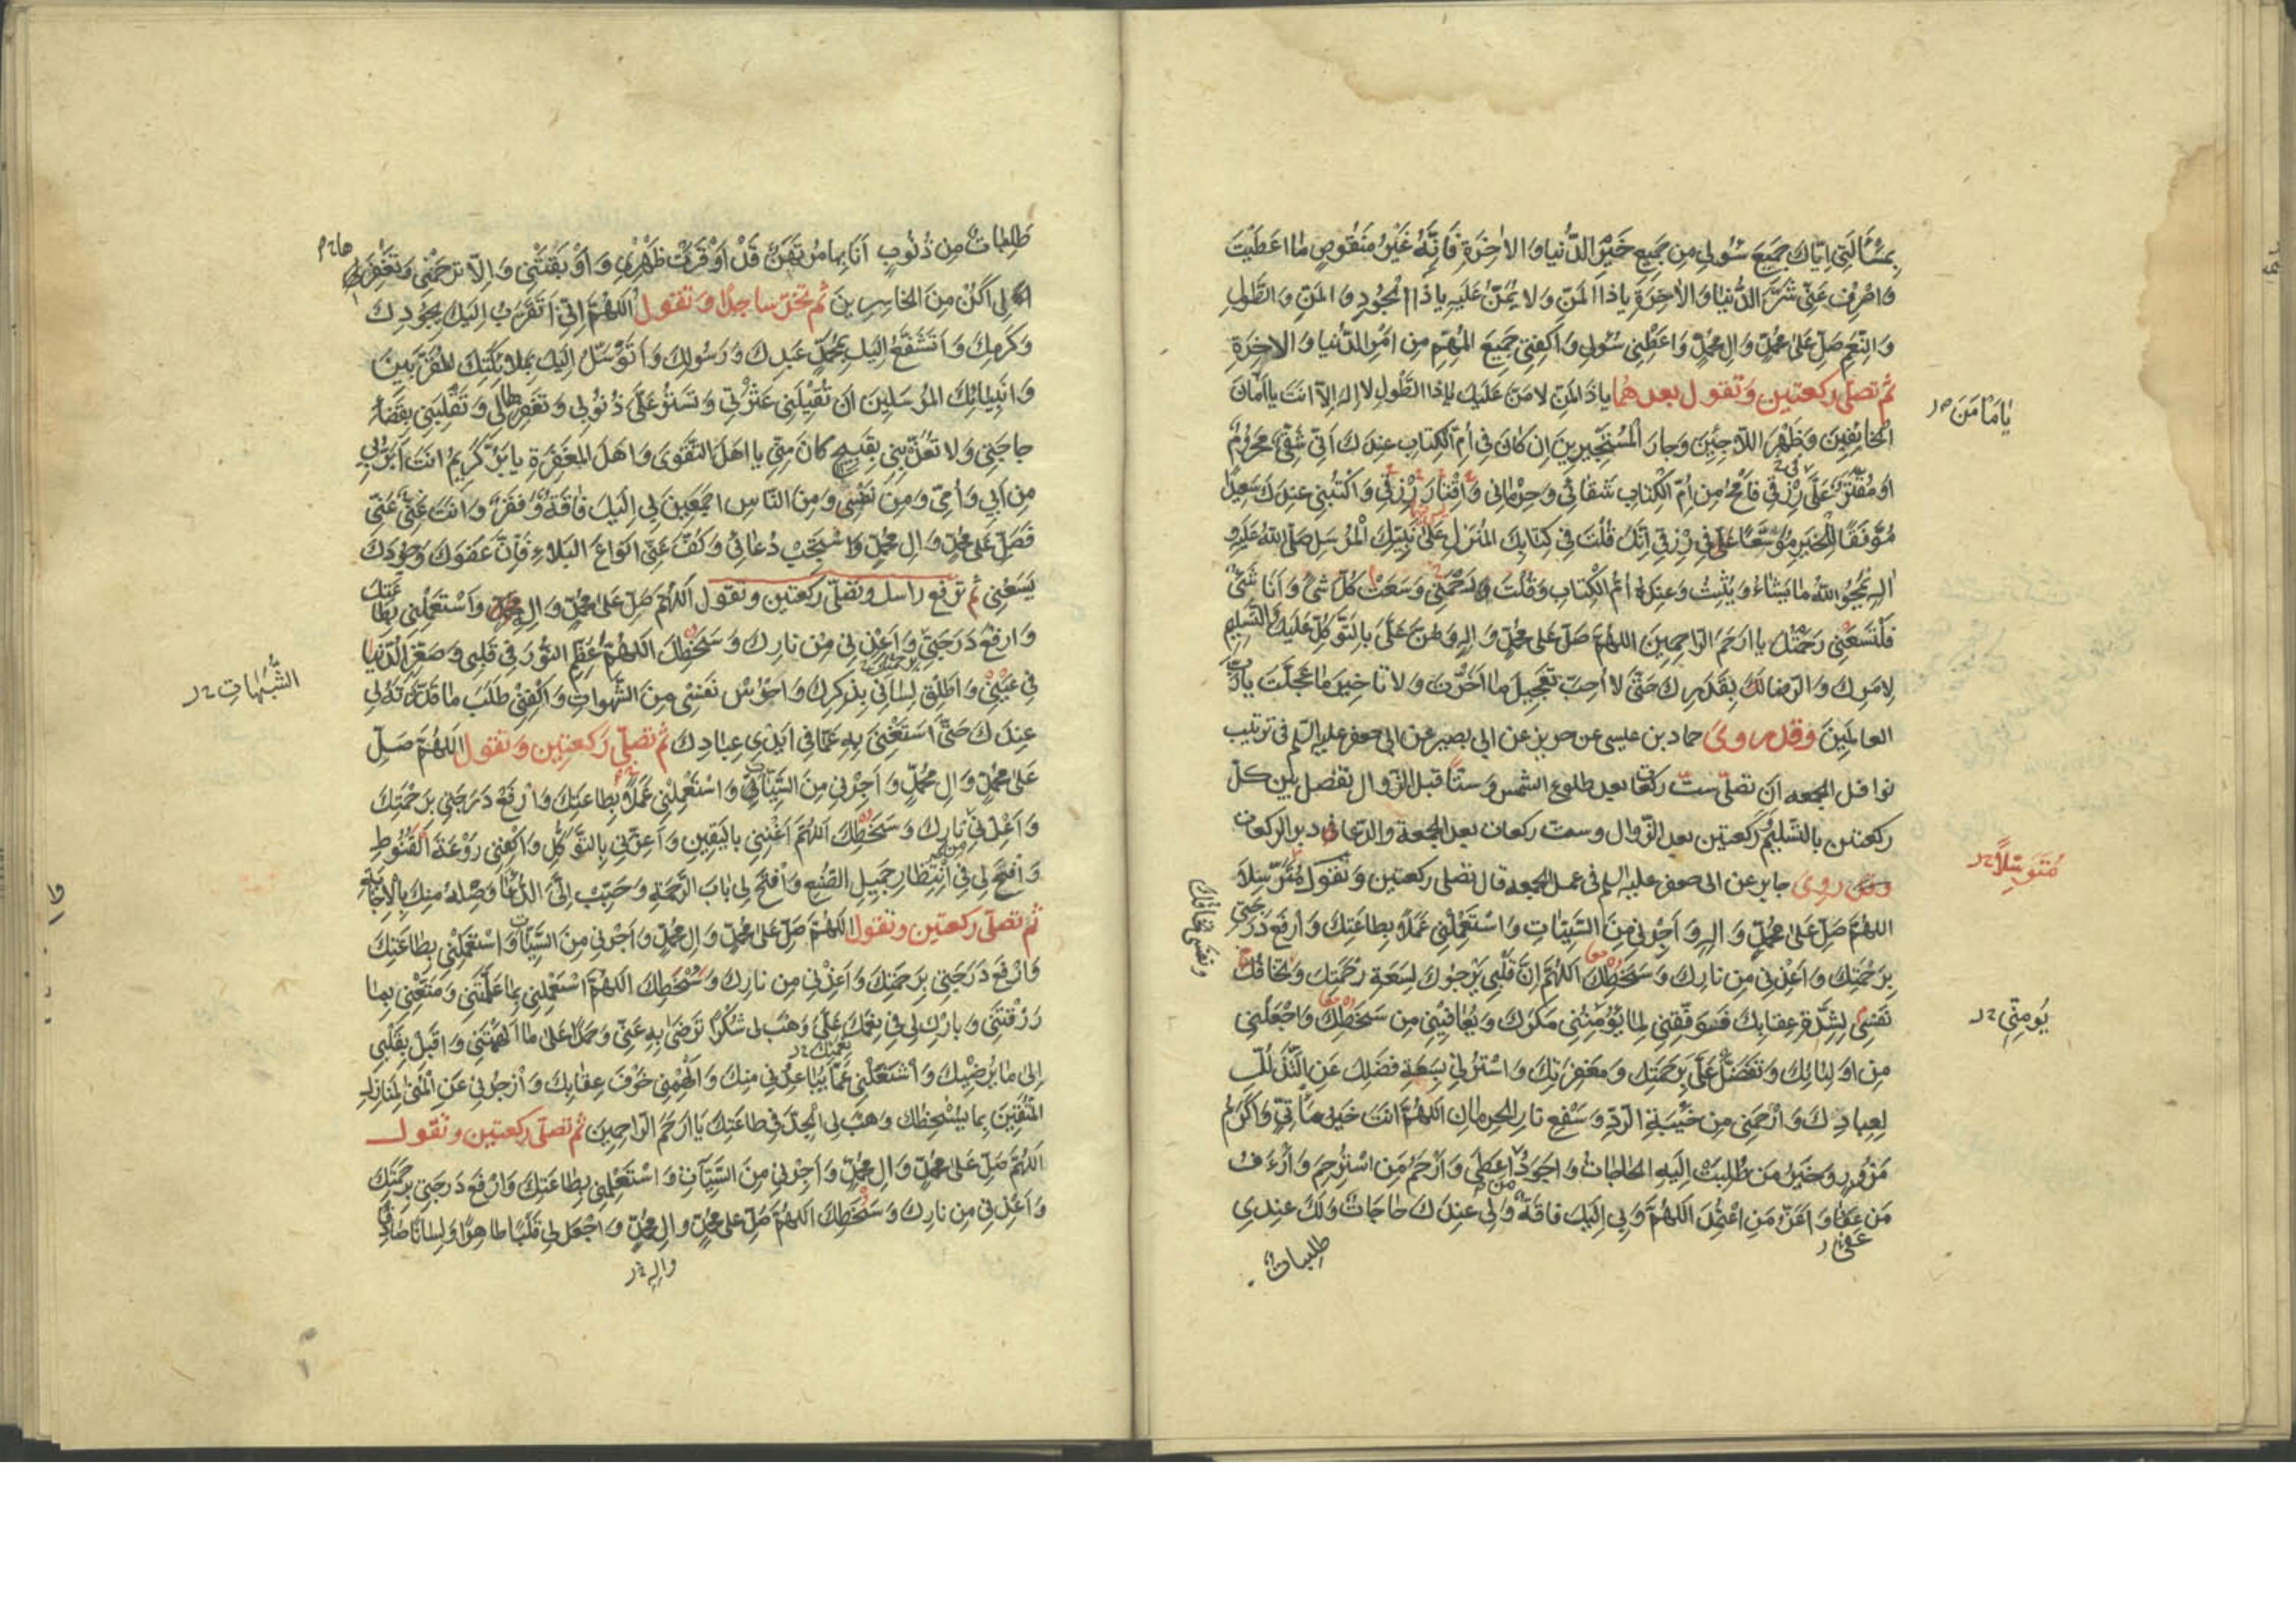 بِمَسْأَلَتِي اِيّاكَ جَمِيعَ سُؤلِي مِن جَمِيعِ خَيْرِ الدُّنيا وَالاٰخِرَةِ فَاِنَّهُ غَيْرُ مَنقُوصٍ مٰا اَعطَيْتَ
وَاصْرِف عَنّي شَرَّ الدُّنيا وَالاٰخِرَةِ ياذَا المَنِّ وَلا يُمَنُّ عَلَيهِ ياذَا الجُودِ وَ المَنِّ وَالطَّولِ
وَ النِّعَمِ صَلِّ عَلىٰ مُحَمَّدٍ وَالِ مُحَمَّدٍ وَاعطِنِي سُؤلِي وَاكفِنِي جَمِيعَ المُهِمِّ مِن اَمْرِ الدُّنيا وَالاٰخِرَةِ
ثُمَّ تصَلّى ركعتين وَتَقول بعدهُما ياذَا المَنِّ لامَنَّ عَلَيكَ ياذَا الطَّولِ لااِلٰهَ اِلّا اَنتَ يااَمانَ
يٰامٰامَنَ
الخائِفينَ وَظَهْرَ اللّاجِئينَ وَجارَ المُسْتَجيرينَ اِن كانَ فِي اُمِّ الكِتابِ عِندَكَ اَنّي شَقِيٌّ مَحرُومٌ
اَو مُقَتَّرٌ عَلَيَّ رِزقِي فَامحُ مِن اُمِّ الكِتابِ شَقائِي وَحِرمانِي وَاِقْتارَ رِزقِي وَاكتُبنِي عِندَكَ سَعِيدًا
مُوَفَّقًا لِلخَيرِ مُوَسَّعًا عَلَيَّ فِي رِزقِي اِنَّكَ قُلتَ فِي كِتابِكَ المُنزَلِ عَلىٰ نَبِيِّكَ المُرسَلِ صَلَّى اللّٰهُ عَلَيهِ
وَالِهِ يَمحُو اللّٰهُ مايَشاءُ وَيُثبِتُ وَعِندَهُ اُمُّ الكِتابِ وَقُلتَ وَرَحْمَتِي وَسِعَتْ كُلَّ شَئٍ وَاَنَا شَئٌ
فَلتَسَعنِي رَحمَتُكَ يااَرحَمَ الرّاحِمينَ اللّٰهُمَّ صَلِّ عَلىٰ مُحَمَّدٍ وَالِهِ وَمُنَّ عَلَيَّ بِالتَّوَكُّلِ عَلَيكَ وَالتَّسليمِ
لِاَمرِكَ وَالرِّضا بِقَدَرِكَ حَتّىٰ لا اُحِبَّ تَعجِيلَ ما اَخَّرتَ وَلا تاخِيرَ ماعَجَّلتَ يارَبَّ
العالَمينَ وَقَد روىٰ حماد بن عيسى عن حريز عن ابي بصير عن ابي جعفر عليه السلم في ترتيب
نوافل الجمعه ان تصلّى ستّ ركعات بعد طلوع الشمس وستّا قبل الزّوال تفصل بين كلّ
ركعتين بالتسليم وركعتين بعد الزّوال وست ركعات بعد الجمعة والدّعا في دبر الركعات
مُتَوَسِّلًا
وقَد روى جابر عن ابى جعفر عليه السلم في عمل الجمعه قال تصلى ركعتين وتَقول
اللّٰهُمَّ صَلِّ عَلىٰ مُحَمَّدٍ وَ الِهِ وَ اَجِرْنِي مِنَ السَّيِّئاتِ وَاسْتَعْمِلْنِي عَمَلًا بِطاعَتِكَ وَارفَع دَرَجَتِي
بِرَحْمَتِكَ وَاَعِذْنِي مِن نارِكَ وَسَخَطِكَ اَللّٰهُمَّ اِنَّ قَلْبِي يَرْجُوكَ لِسَعَةِ رَحْمَتِكَ وَتَخافُكَ
ونفسى تخافك
نَفسِي لِشِدَّةِ عِقابِكَ فَوَفِّقنِي لِما يُؤمِنُنِي مَكرَكَ وَيُعافِينِي مِن سَخَطِكَ وَاجْعَلنِي
يُومِنّى
مِن اَولِيائِكَ وَتَفَضَّل عَلَيَّ بِرَحمَتِكَ وَمَغفِرَتِكَ وَاستُرنِي بِسَعَةِ فَضلِكَ عَنِ التَّذَلُّلِ
لِعِبادِكَ وَارْحَمنِي مِن خَيبَةِ الرَّدِّ وَسَفعِ نارِ الحِرمانِ اَللّٰهُمَّ اَنتَ خَيرُ مَأْتِيٍّ وَاَكرَمُ
مَزُورٍ وَخَيرُ مَن طُلِبَتْ اِلَيهِ الحاجاتُ وَاَجوَدُ مَن اَعطىٰ وَاَرحَمُ مَنِ استُرحِمَ وَاَرأَفُ
مَن عَفا وَاَعَزُّ مَنِ اعتُمِدَ اَللّٰهُمَّ وَلِي اِلَيكَ فاقَةٌ وَلِي عِندَكَ حاجاتٌ وَلَكَ عِندِي
طلبات
طَلِبٰاتٌ مِن ذُنُوبٍ اَنَا بِها مُرتَهَنٌ قَدْ اَوْقَرَتْ ظَهْرِي وَاَوْبَقَتْنِي وَاِلّا تَرحَمنِي وَتَغْفِرْها
لِي اَكُنْ مِنَ الخاسِرينَ ثُمَّ تخرّ ساجدًا وَتَقول اَللّٰهُمَّ اِنّي اَتَقَرَّبُ اِلَيكَ بِجُودِكَ
وَكَرَمِكَ وَاَتَشَفَّعُ اِلَيكَ بِمُحَمَّدٍ عَبدِكَ وَرَسُولِكَ وَاَتَوَسَّلُ اِلَيكَ بِمَلائِكَتِكَ المُقَرَّبينَ
وَاَنبِيائِكَ المُرسَلينَ اَن تُقِيلَنِي عَثْرَتِي وَتَستُرَ عَلَيَّ ذُنُوبِي وَتَغفِرَها لِي وَتَقلِبَنِي بِقَضاءِ
حاجَتِي وَلا تُعَذِّبَنِي بِقَبِيحٍ كانَ مِنّي يا اَهلَ التَّقوَى وَاَهلَ المَغفِرَةِ يابَرُّ يا كَرِيمُ اَنتَ اَبَرُّ بِي
مِن اَبِي وَاُمّي وَمِن نَفسِي وَمِنَ النّاسِ اَجمَعينَ لِي اِلَيكَ فاقَةٌ وَفَقرٌ وَاَنتَ غَنِيٌّ عَنّي
فَصَلِّ عَلىٰ مُحَمَّدٍ وَالِ مُحَمَّدٍ وَاستَجِبْ دُعائِي وَكُفَّ عَنّي اَنواعَ البَلاءِ فَاِنَّ عَفوَكَ وَجُودَكَ
يَسَعُنِي ثم ترفع راسك وتصلّى ركعتين وتقول اَللّٰهُمَّ صَلِّ عَلىٰ مُحَمَّدٍ وَالِ مُحَمَّدٍ وَاسْتَعمِلنِي بِطاعَتِكَ
وَارفَعْ دَرَجَتِي وَاَعِذْنِي مِن نارِكَ وَسَخَطِكَ اَللّٰهُمَّ عَظِّمِ النُّورَ فِي قَلبِي وَصَغِّرِ الدُّنيا
الشُّبُهاتِ
فِي عَيْنِي وَاَطلِق لِسانِي بِذِكرِكَ وَاحرُسْ نَفسِي مِنَ الشَّهَواتِ وَاكفِنِي طَلَبَ ماقَدَّرتَهُ لِي
عِندَكَ حَتّىٰ اَستَغنِيَ بِهِ عَمّا فِي اَيدِي عِبادِكَ ثُمَّ تصَلّى رَكعتين وَتقول اَللّٰهُمَّ صَلِّ
عَلىٰ مُحَمَّدٍ وَالِ مُحَمَّدٍ وَاَجِرْنِي مِنَ السَّيِّئاتِ وَاسْتَعمِلنِي عَمَلًا بِطاعَتِكَ وَارفَعْ دَرَجَتِي بِرَحْمَتِكَ
وَاَعِذْنِي مِن نارِكَ وَسَخَطِكَ اَللّٰهُمَّ اَغْنِنِي بِاليَقِينِ وَاَعِزَّنِي بِالتَّوَكُّلِ وَاكفِنِي رَوْعَةَ القُنُوطِ
وَافسَح لِي فِي انتِظارِ جَمِيلِ الصُّنعِ وَافتَح لِي بابَ الرَّحمَةِ وَحَبِّب اِلَيَّ الدُّعاءَ وَصِلْهُ مِنكَ بِالاِجابَةِ
ثُمَّ تصَلّى رَكعتين وَتقول اَللّٰهُمَّ صَلِّ عَلىٰ مُحَمَّدٍ وَالِ مُحَمَّدٍ وَاَجِرنِي مِنَ السَّيِّئاتِ وَاسْتَعمِلنِي بِطاعَتِكَ
وَارفَعْ دَرَجَتِي بِرَحمَتِكَ وَاَعِذنِي مِن نارِكَ وَسَخَطِكَ اَللّٰهُمَّ استَعمِلنِي بِما عَلَّمتَنِي وَمَتِّعنِي بِما
رَزَقتَنِي وَبارِك لِي فِي نِعَمِكَ عَلَيَّ وَهَبْ لِي شُكرًا تَرضىٰ بِهِ عَنّي وَحَمدًا عَلىٰ ما اَلهَمتَنِي وَاَقبِل بِقَلبِي
اِلىٰ مايُرضِيكَ وَاشْغَلنِي عَمّا يُباعِدُنِي مِنكَ وَاَلهِمنِي خَوفَ عِقابِكَ وَازجُرنِي عَنِ المُنىٰ لِمَنازِلِ
المُتَّقينَ بِما يُسخِطُكَ وَهَب لِي الجِدَّ فِي طاعَتِكَ يااَرحَمَ الرّاحِمينَ ثُمَّ تصَلّى ركعتين وتقول
اَللّٰهُمَّ صَلِّ عَلىٰ مُحَمَّدٍ وَالِ مُحَمَّدٍ وَاَجِرنِي مِنَ السَّيِّئاتِ وَاسْتَعمِلنِي بِطاعَتِكَ وَارفَع دَرَجَتِي بِرَحمَتِكَ
وَاَعِذنِي مِن نارِكَ وَسَخَطِكَ اَللّٰهُمَّ صَلِّ عَلىٰ مُحَمَّدٍ وَالِ مُحَمَّدٍ وَاجعَل لِي قَلبًا طاهِرًا وَلِسانًا صادِقًا
وَالِهِ